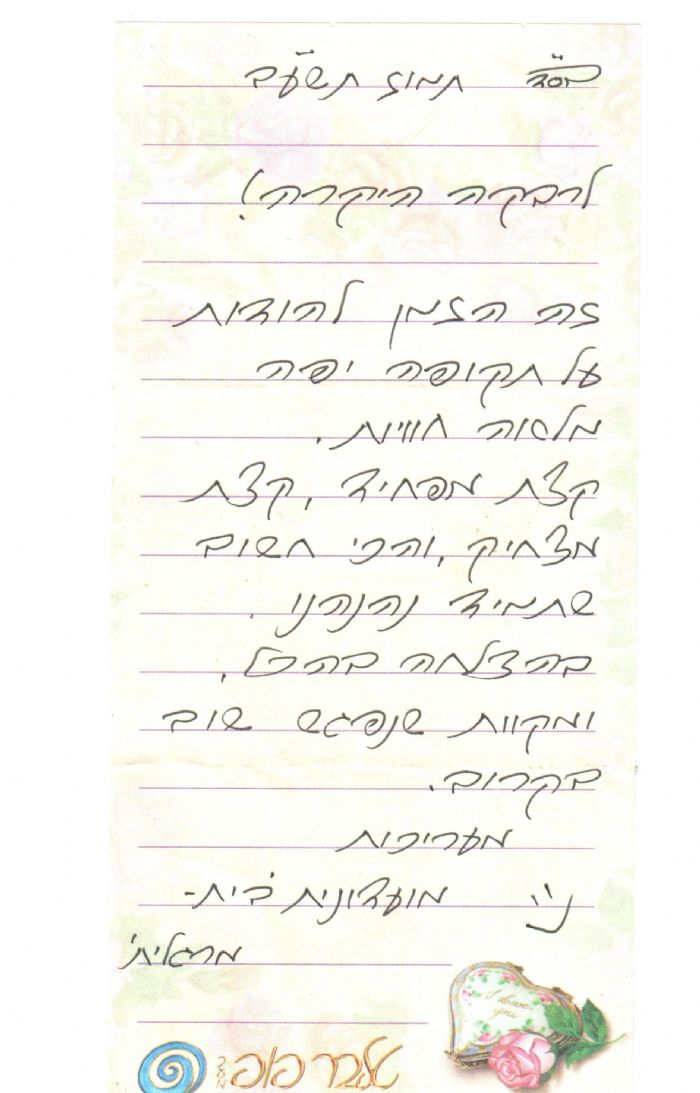 בס"ד תמוז תשע"ב
לרבקה היקרה!
זה הזמן להודות
על תקופה יפה
מלאה חוויות.
קצת מפחיד, קצת
מצחיק, והכי חשוב
שתמיד נהנהנו.
בהצלחה בהכל,
ומקוות שנפגש שוב
בקרוב.
מעריכות
מועדונית בית-
מרגלית'
I thank you